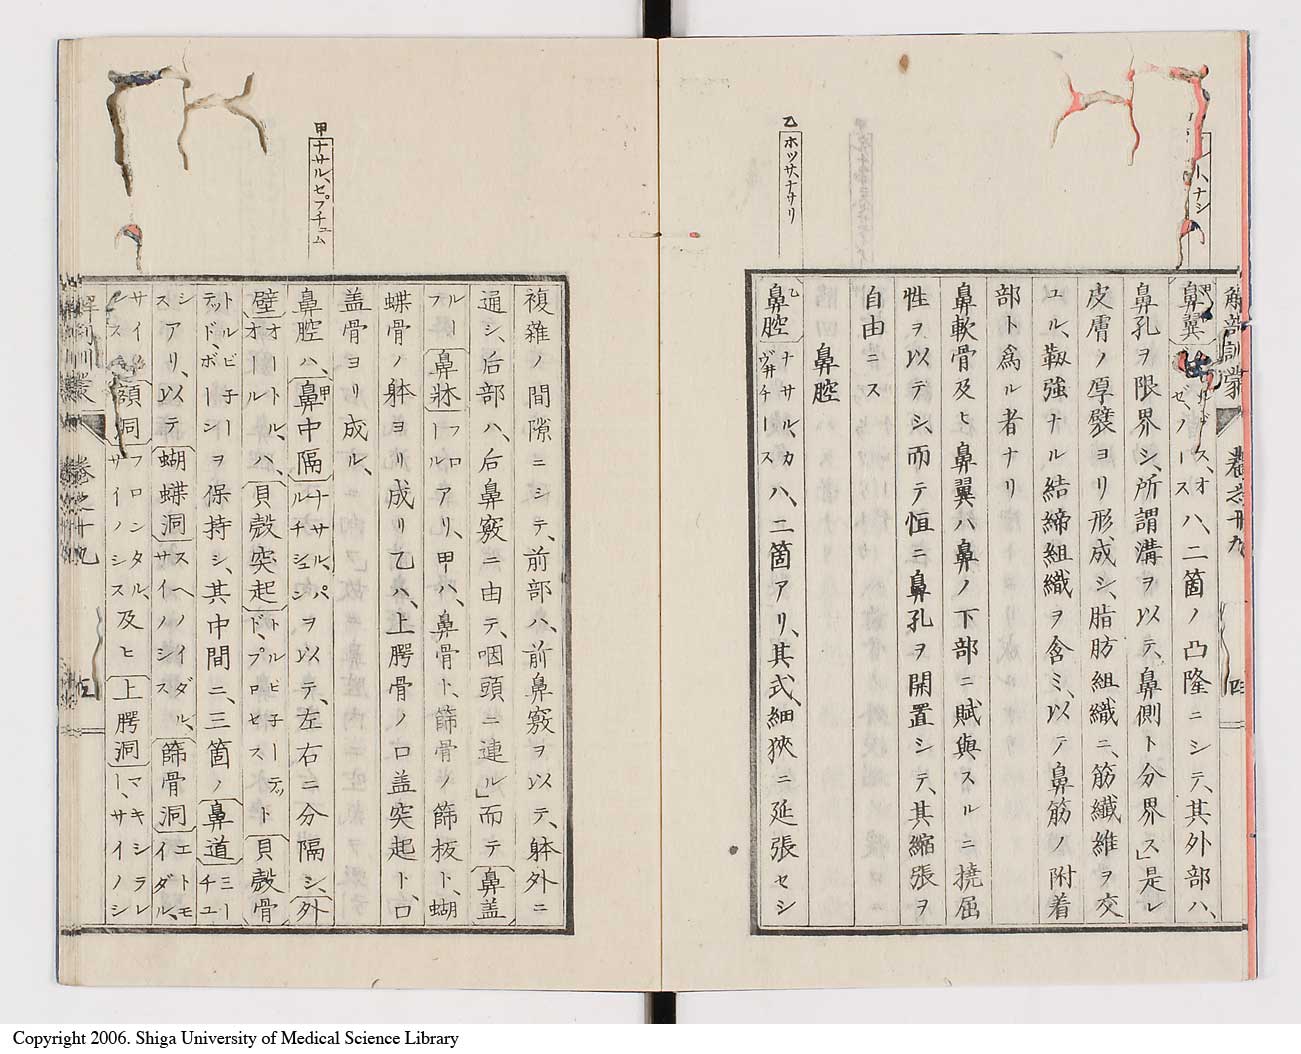 解剖訓蒙
卷之十九
四
鼻翼
ハ、二箇ノ凸隆ニシテ、其外部ハ、
鼻孔ヲ限界シ、所謂溝ヲ以テ、鼻側ト分界ス」是レ
皮膚ノ厚襞ヨリ形成シ、脂肪組織ニ、筋纖維ヲ交
ユル、靱強ナル結締組織ヲ含ミ、以テ鼻筋ノ附着
部ト爲ル者ナリ
鼻軟骨及ヒ鼻翼ハ鼻ノ下部ニ賦與スルニ撓屈
性ヲ以テシ、而テ恒ニ鼻孔ヲ開置シテ、其縮張ヲ
自由ニス
鼻腔
乙 ホッサ、ナサリ
乙 鼻腔 ナサル、カヴ井チース ハ、二箇アリ、其式、細狹ニ延張セシ
複雜ノ間隙ニシテ、前部ハ、前鼻竅ヲ以テ、躰外ニ
通シ、后部ハ、后鼻竅ニ由テ、咽頭ニ連ル」而テ 鼻蓋
ルーフ 鼻牀 フロール アリ、甲ハ、鼻骨ト、篩骨ノ篩板ト、蝴
蝶骨ノ躰ヨリ成リ乙ハ、上腭骨ノ口蓋突起ト、口
蓋骨ヨリ成ル、
甲 ナサル、セプチュム
鼻腔ハ、甲 鼻中隔 ナサル、パルチション ヲ以テ、左右ニ分隔シ、外
壁 オートル、オール ハ、貝殼突起 トルビ子ーテッド、プロセス ト 貝殼骨
トルビ子ーテッド、ボーン ヲ保持シ、其中間ニ、三箇ノ 鼻道 ミーチュス
アリ、以テ 蝴蝶洞 スヘノイダル、サイノシス 篩骨洞 エトモイダル、
サイノシス 額洞 フロンタル、サイノシス 及ヒ 上腭洞 マキシラレー、サイノシ